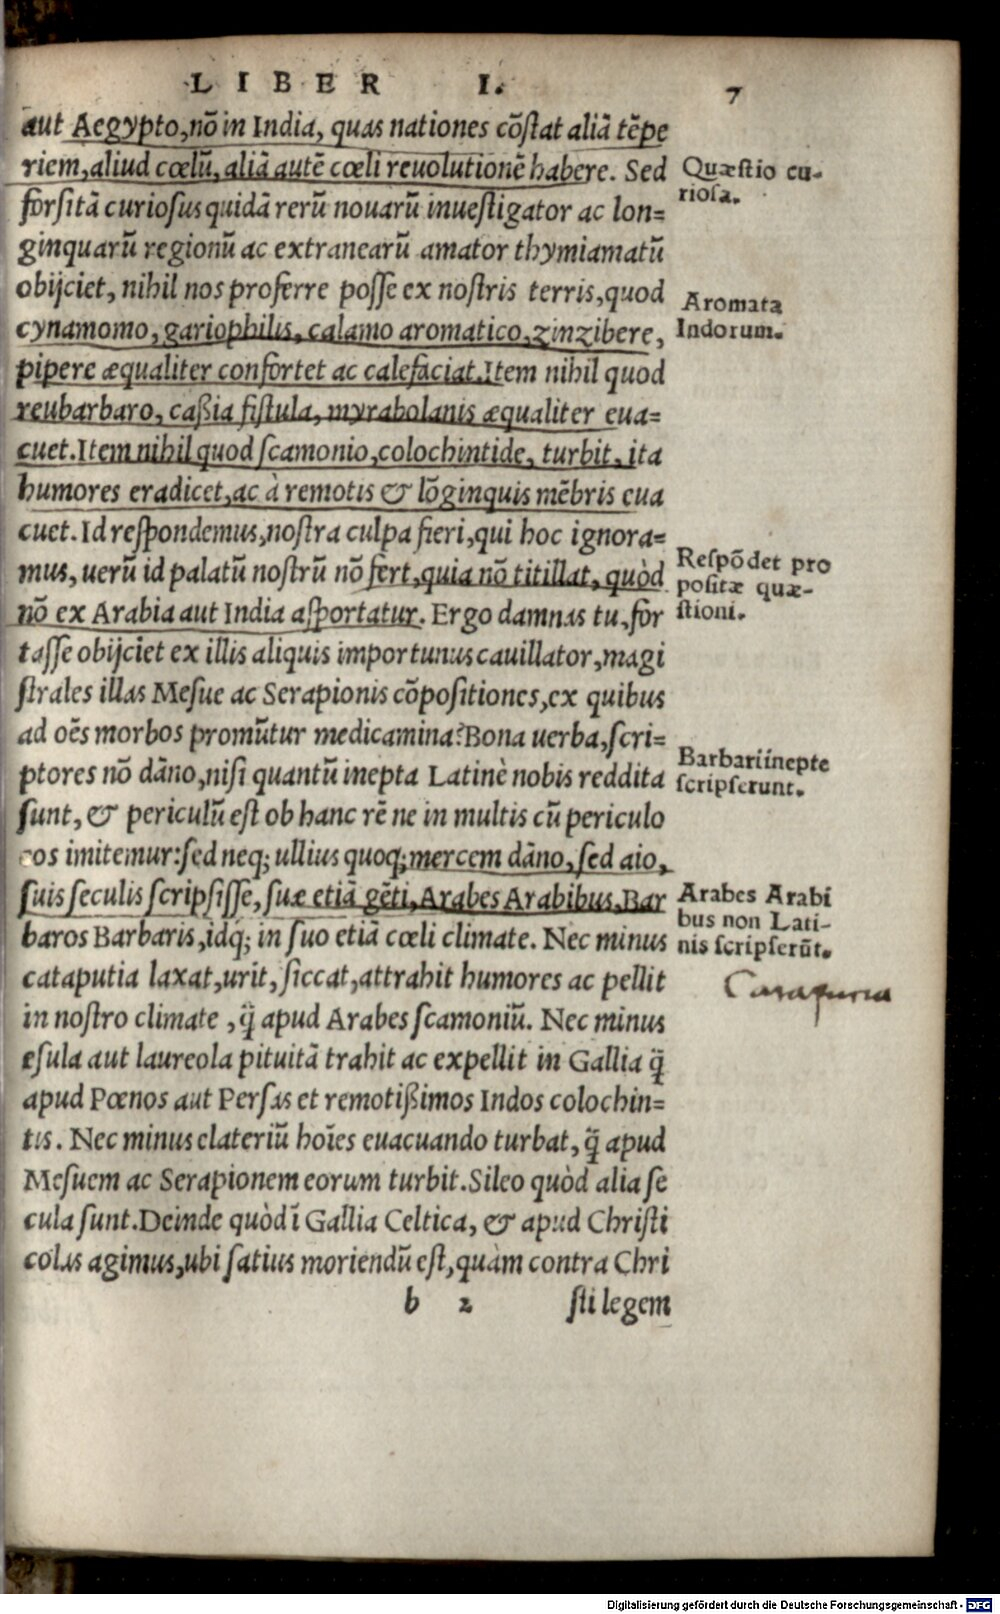 LIBER I. 7
aut Aegypto, nõ in India, quas nationes cõstat aliã tẽpe
riem, aliud cœlũ, aliã autẽ cœli reuolutionẽ habere. Sed
forsitã curiosus quidã rerũ nouarũ inuestigator ac lon=
ginquarũ regionũ ac extranearũ amator thymiamatũ
obijciet, nihil nos proferre posse ex nostris terris, quod
cynamomo, gariophilis, calamo aromatico, zinzibere,
pipere æqualiter confortet ac calefaciat. Item nihil quod
reubarbaro, caßia fistula, myrabolanis æqualiter eua=
cuet. Item nihil quod scamonio, colochintide, turbit, ita
humores eradicet, ac à remotis & lõginquis mẽbris eua
cuet. Id respondemus, nostra culpa fieri, qui hoc ignora=
mus, uerũ id palatũ nostrũ nõ fert, quia nõ titillat, quòd
nõ ex Arabia aut India asportatur. Ergo damnas tu, for
tasse obijciet ex illis aliquis importunus cauillator, magi
strales illas Mesue ac Serapionis cõpositiones, ex quibus
ad oẽs morbos promũtur medicamina? Bona uerba, scri=
ptores nõ dãno, nisi quantũ inepta Latinè nobis reddita
sunt, & periculũ est ob hanc rẽ ne in multis cũ periculo
eos imitemur: sed neq; ullius quoq; mercem dãno, sed aio,
suis seculis scripsisse, suæ etiã gẽti, Arabes Arabibus, Bar
baros Barbaris, idq́; in suo etiã cœli climate. Nec minus
cataputia laxat, urit, siccat, attrahit humores ac pellit
in nostro climate, q̃ apud Arabes scamoniũ. Nec minus
esula aut laureola pituitã trahit ac expellit in Gallia q̃
apud Pœnos aut Persas et remotißimos Indos colochin=
tis. Nec minus elateriũ hoĩes euacuando turbat, q̃ apud
Mesuem ac Serapionem eorum turbit. Sileo quòd alia se
cula sunt. Deinde quòd ĩ Gallia Celtica, & apud Christi
colas agimus, ubi satius moriendũ est, quàm contra Chri
b 2 sti legem
Quæstio cu-
riosa.
Aromata
Indorum.
Respõdet pro
positæ quæ-
stioni.
Barbari inepte
scripserunt.
Arabes Arabi
bus non Lati-
nis scripserũt.
Digitalisierung gefördert durch die Deutsche Forschungsgemeinschaft - DFG